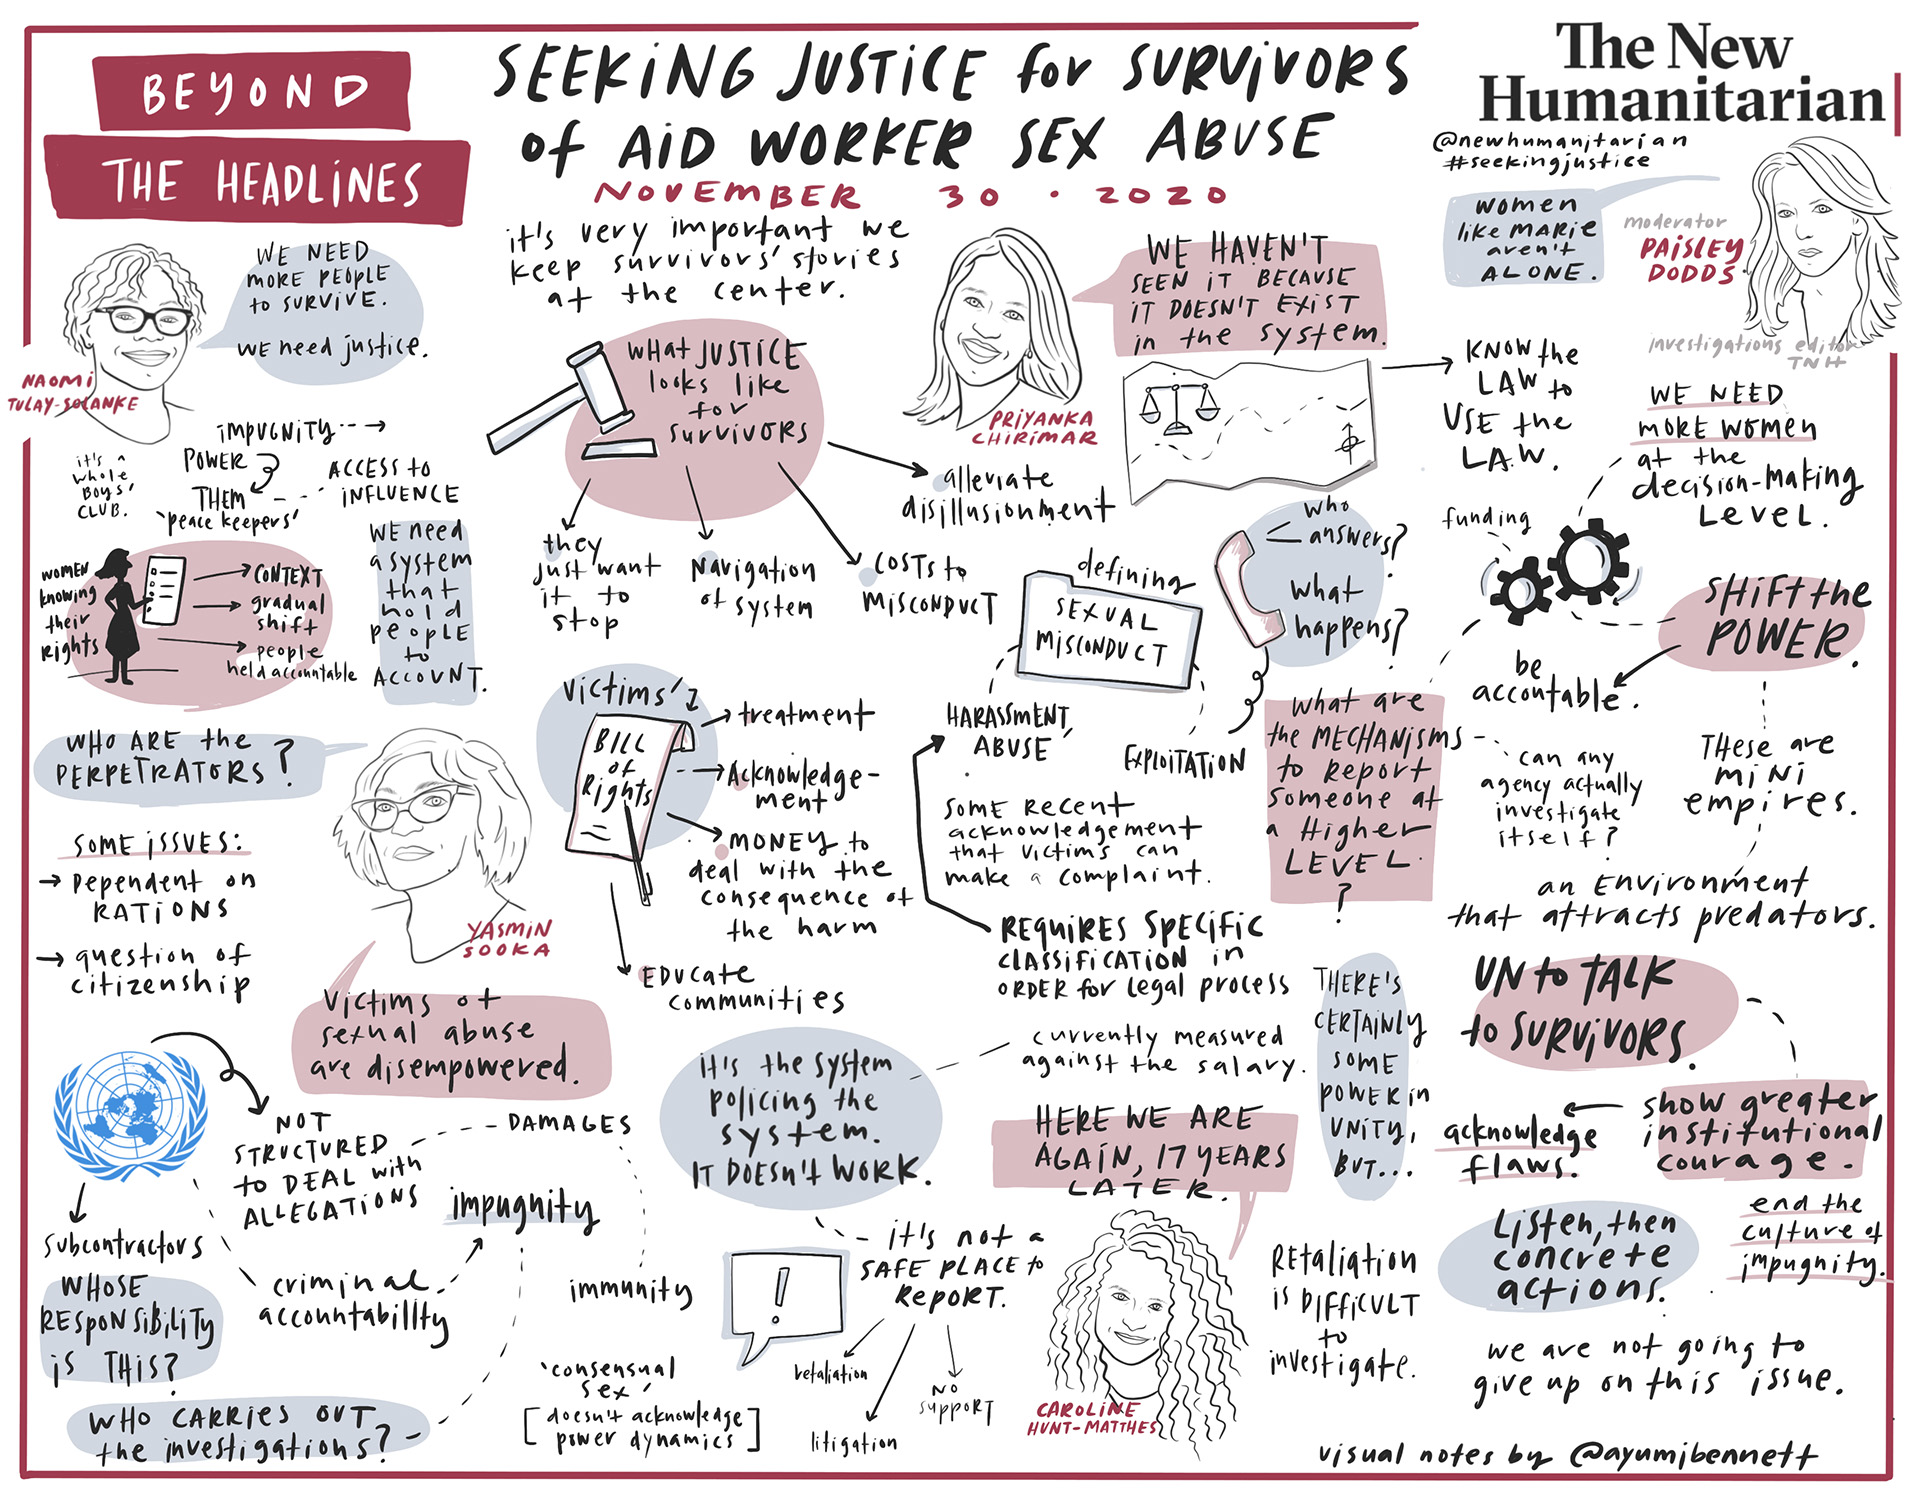 BEYOND
THE HEADLINES
SEEKING JUSTICE for SURVIVORS
of AID WORKER SEX ABUSE
NOVEMBER 30 · 2020
The New
Humanitarian
@newhumanitarian
#seekingjustice
WE NEED
MORE PEOPLE
to SURVIVE.
WE need justice.
NAOMI
TULAY-SOLANKE
it's very important we
keep survivors' stories
at the center.
WHAT JUSTICE
looks like
for
survivors
they
just want
it to
stop
Navigation
of system
COSTS to
MISCONDUCT
alleviate
disillusionment
PRIYANKA
CHIRIMAR
WE HAVEN'T
SEEN it BECAUSE
IT DOESN'T EXIST
in the system.
KNOW the
LAW to
USE the
LAW.
women
like MARIE
aren't
ALONE.
moderator
PAISLEY
DODDS
investigations editor
TNH
WE NEED
MORE WOMEN
at the
decision-making
LEVEL.
impugnity
POWER
THEM
'peace keepers'
ACCESS to
INFLUENCE
it's a
whole
BOYS'
CLUB.
WOMEN
knowing
their
rights
CONTEXT
gradual
shift
people
held accountable
WE need
a system
that
hold
people
to
ACCOUNT.
WHO ARE the
PERPETRATORS?
SOME ISSUES:
Dependent on
RATIONS
question of
citizenship
YASMIN
SOOKA
Victims of
sexual abuse
are disempowered.
Victims'
BILL
of
Rights
treatment
Acknowledge-
ment
MONEY to
deal with the
consequence of
the harm
EDUCATE
communities
defining
SEXUAL
MISCONDUCT
HARASSMENT,
ABUSE
EXPLOITATION
SOME RECENT
acknowledgement
that victims can
make a complaint.
REQUIRES SPECIFIC
CLASSIFICATION in
ORDER for legal process
who
answers?
what
happens?
What are
the MECHANISMS
to Report
someone at
a Higher
LEVEL
?
funding
SHIFT the
POWER.
be
accountable.
can any
agency actually
investigate
itself?
THese are
mini
empires.
an ENVIRONMENT
that attracts predators.
NOT
STRUCTURED
to DEAL with
ALLEGATIONS
DAMAGES
impugnity
immunity
Subcontractors
WHOSE
RESPONSIBILITY
is THIS?
criminal
accountability
WHO CARRIES OUT
the investigations?
'consensual
sex'
[doesn't acknowledge
power dynamics]
it's the system
policing the
system.
IT DOESN'T WORK.
currently measured
against the salary.
it's not a
SAFE PLACE to
REPORT.
!
retaliation
litigation
NO
support
HERE WE ARE
AGAIN, 17 YEARS
LATER.
CAROLINE
HUNT-MATTHES
THERE'S
CERTAINLY
SOME
POWER in
UNITY,
BUT...
REtaliation
is DIFFICULT
to
investigate.
UN to TALK
to SURVIVORS.
show greater
institutional
courage.
acknowledge
flaws.
end the
culture of
impugnity.
Listen, then
concrete
actions.
we are not going to
give up on this issue.
visual notes by @ayumibennett